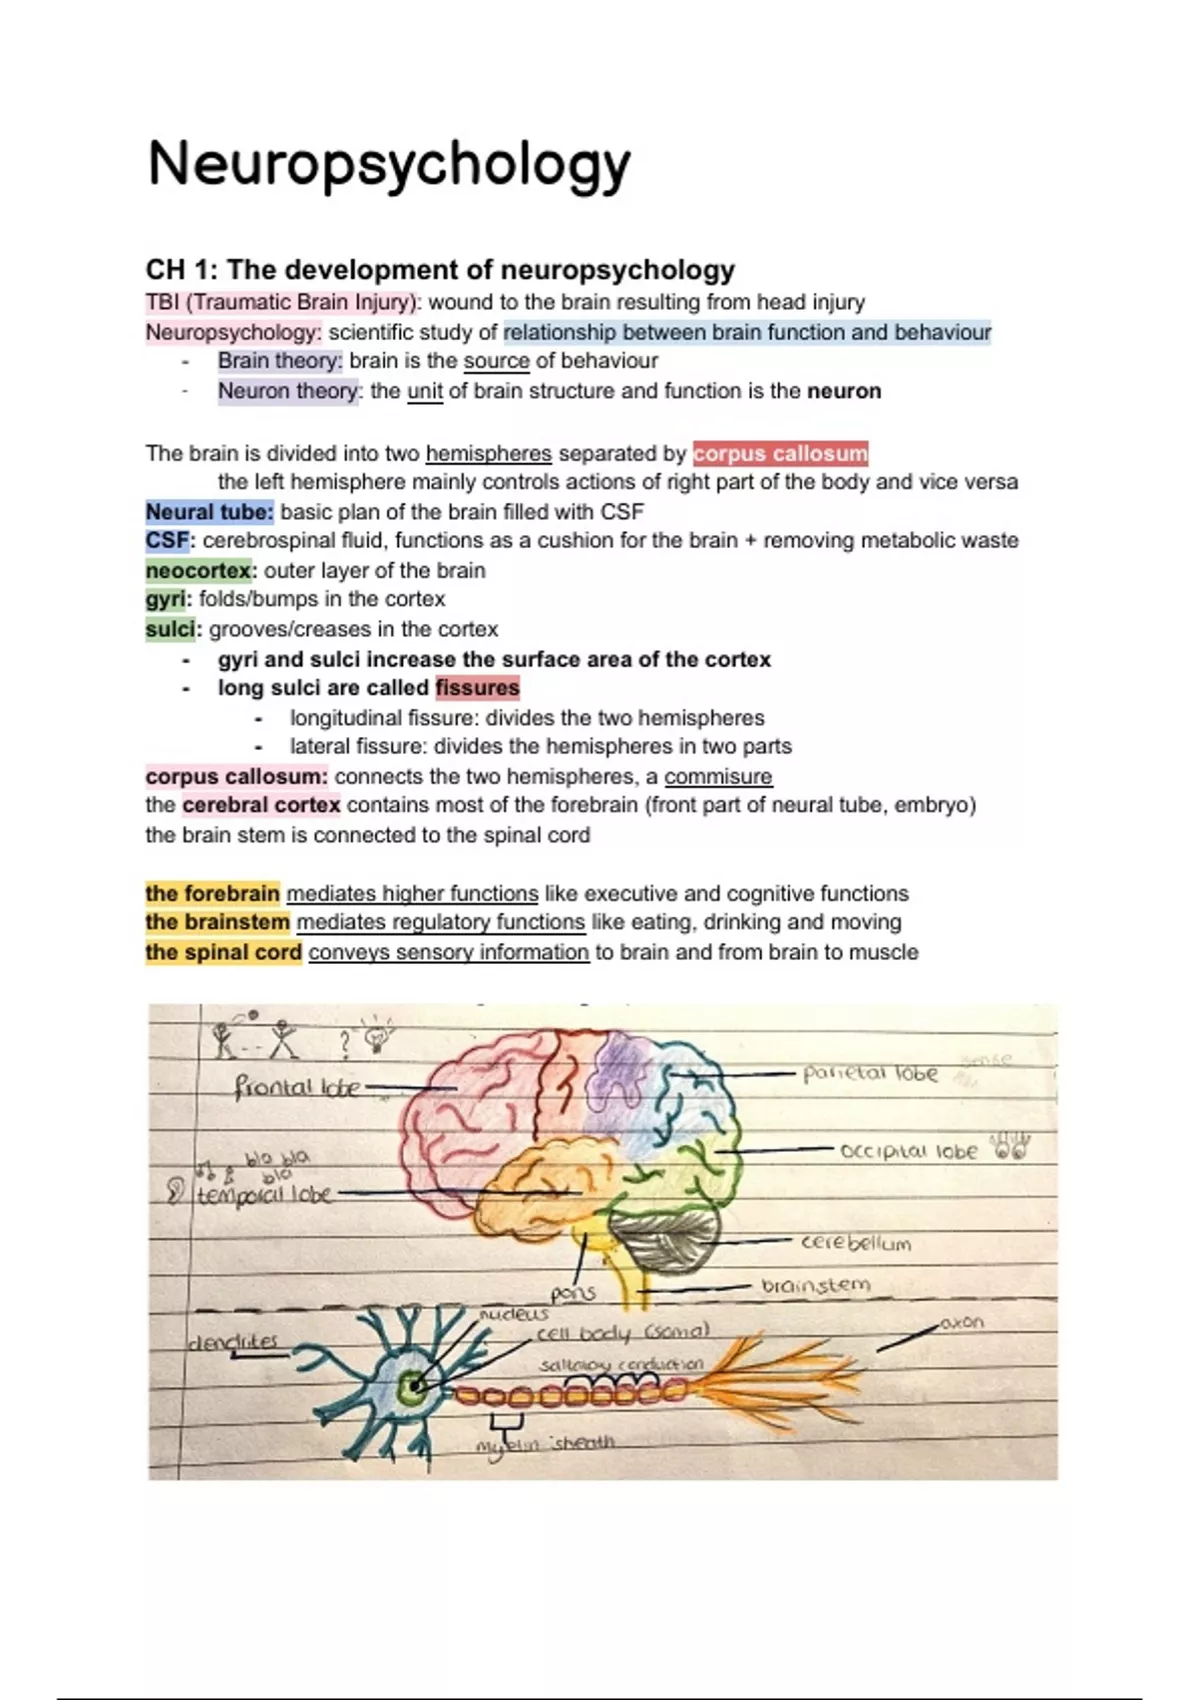 Neuropsychology
CH 1: The development of neuropsychology
TBI (Traumatic Brain Injury): wound to the brain resulting from head injury
Neuropsychology: scientific study of relationship between brain function and behaviour
- Brain theory: brain is the source of behaviour
- Neuron theory: the unit of brain structure and function is the neuron
The brain is divided into two hemispheres separated by corpus callosum
the left hemisphere mainly controls actions of right part of the body and vice versa
Neural tube: basic plan of the brain filled with CSF
CSF: cerebrospinal fluid, functions as a cushion for the brain + removing metabolic waste
neocortex: outer layer of the brain
gyri: folds/bumps in the cortex
sulci: grooves/creases in the cortex
- gyri and sulci increase the surface area of the cortex
- long sulci are called fissures
- longitudinal fissure: divides the two hemispheres
- lateral fissure: divides the hemispheres in two parts
corpus callosum: connects the two hemispheres, a commisure
the cerebral cortex contains most of the forebrain (front part of neural tube, embryo)
the brain stem is connected to the spinal cord
the forebrain mediates higher functions like executive and cognitive functions
the brainstem mediates regulatory functions like eating, drinking and moving
the spinal cord conveys sensory information to brain and from brain to muscle
?
frontal lobe
parietal lobe
sense
bla bla
bla
occipital lobe
temporal lobe
cerebellum
pons
brainstem
nucleus
dendrites
cell body (soma)
axon
saltatory conduction
myelin sheath